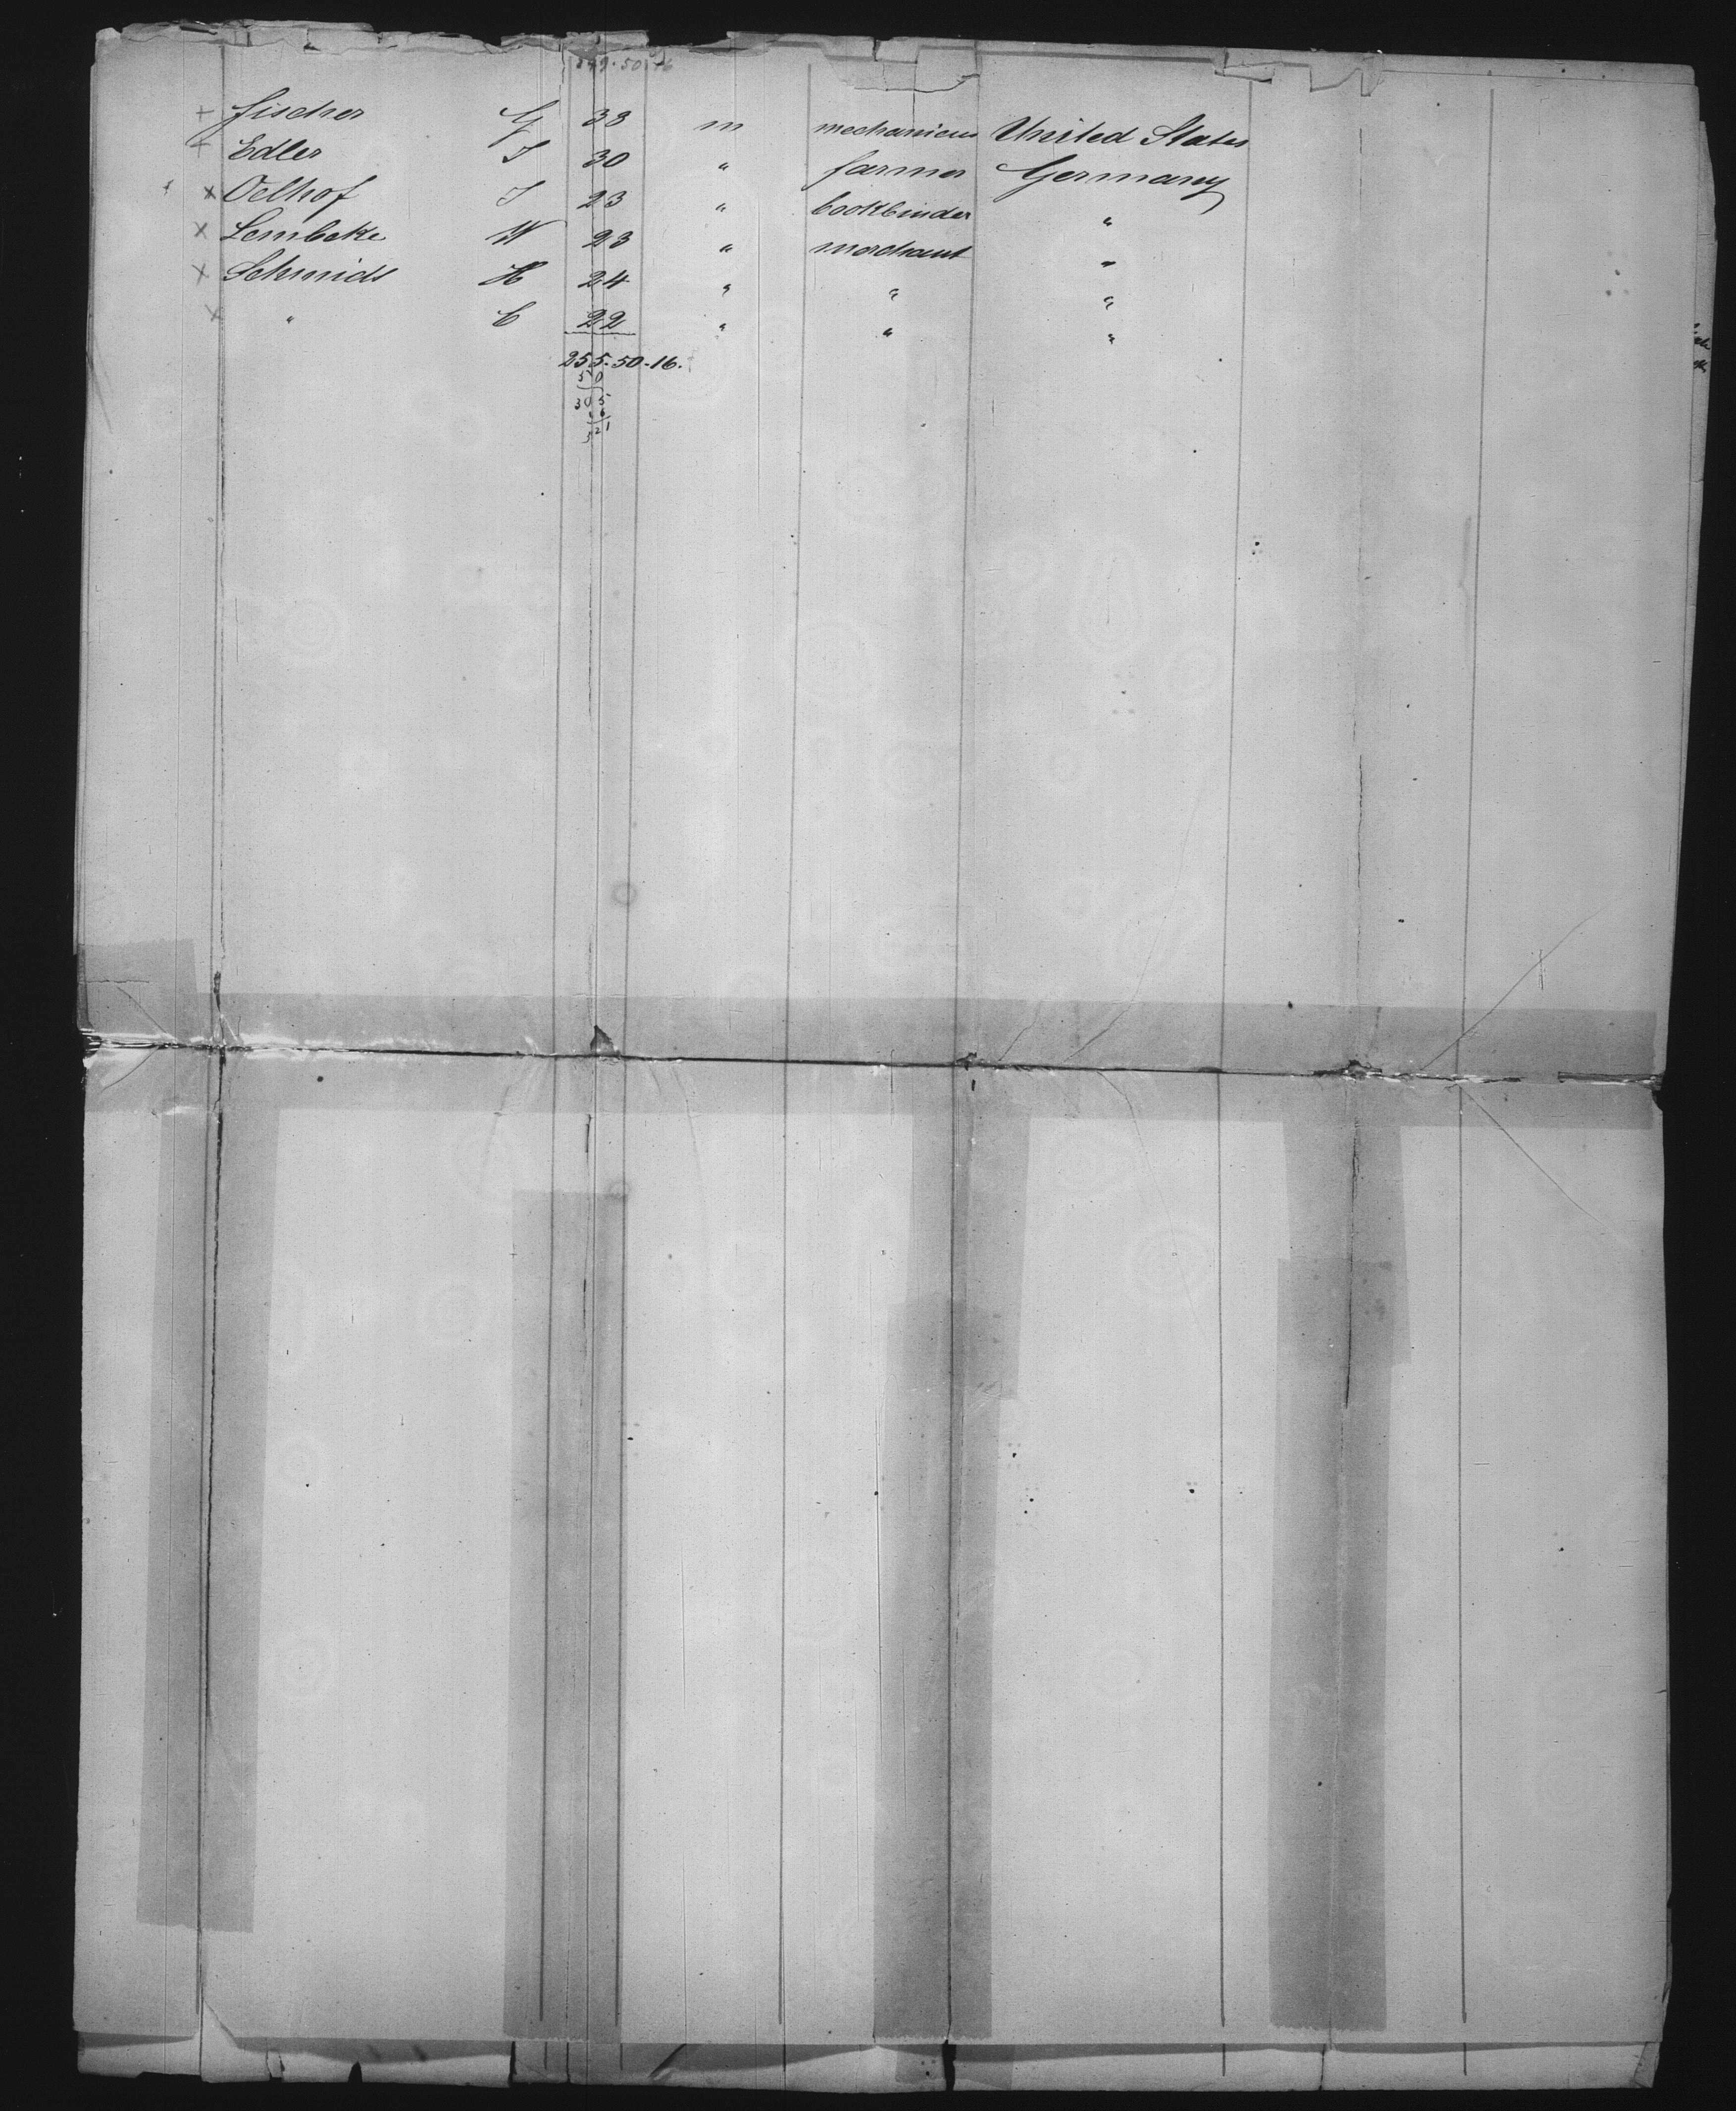 249.50.16
+ Fischer G 38 m mechanicus United States
+ Edler J 30 " farmer Germany
x Oelhof J 23 " bookbinder "
x Lembcke W 23 " merchant "
x Schmidt H 24 " " "
x " C 22 " " "
255.50.16.
50
305
16
321